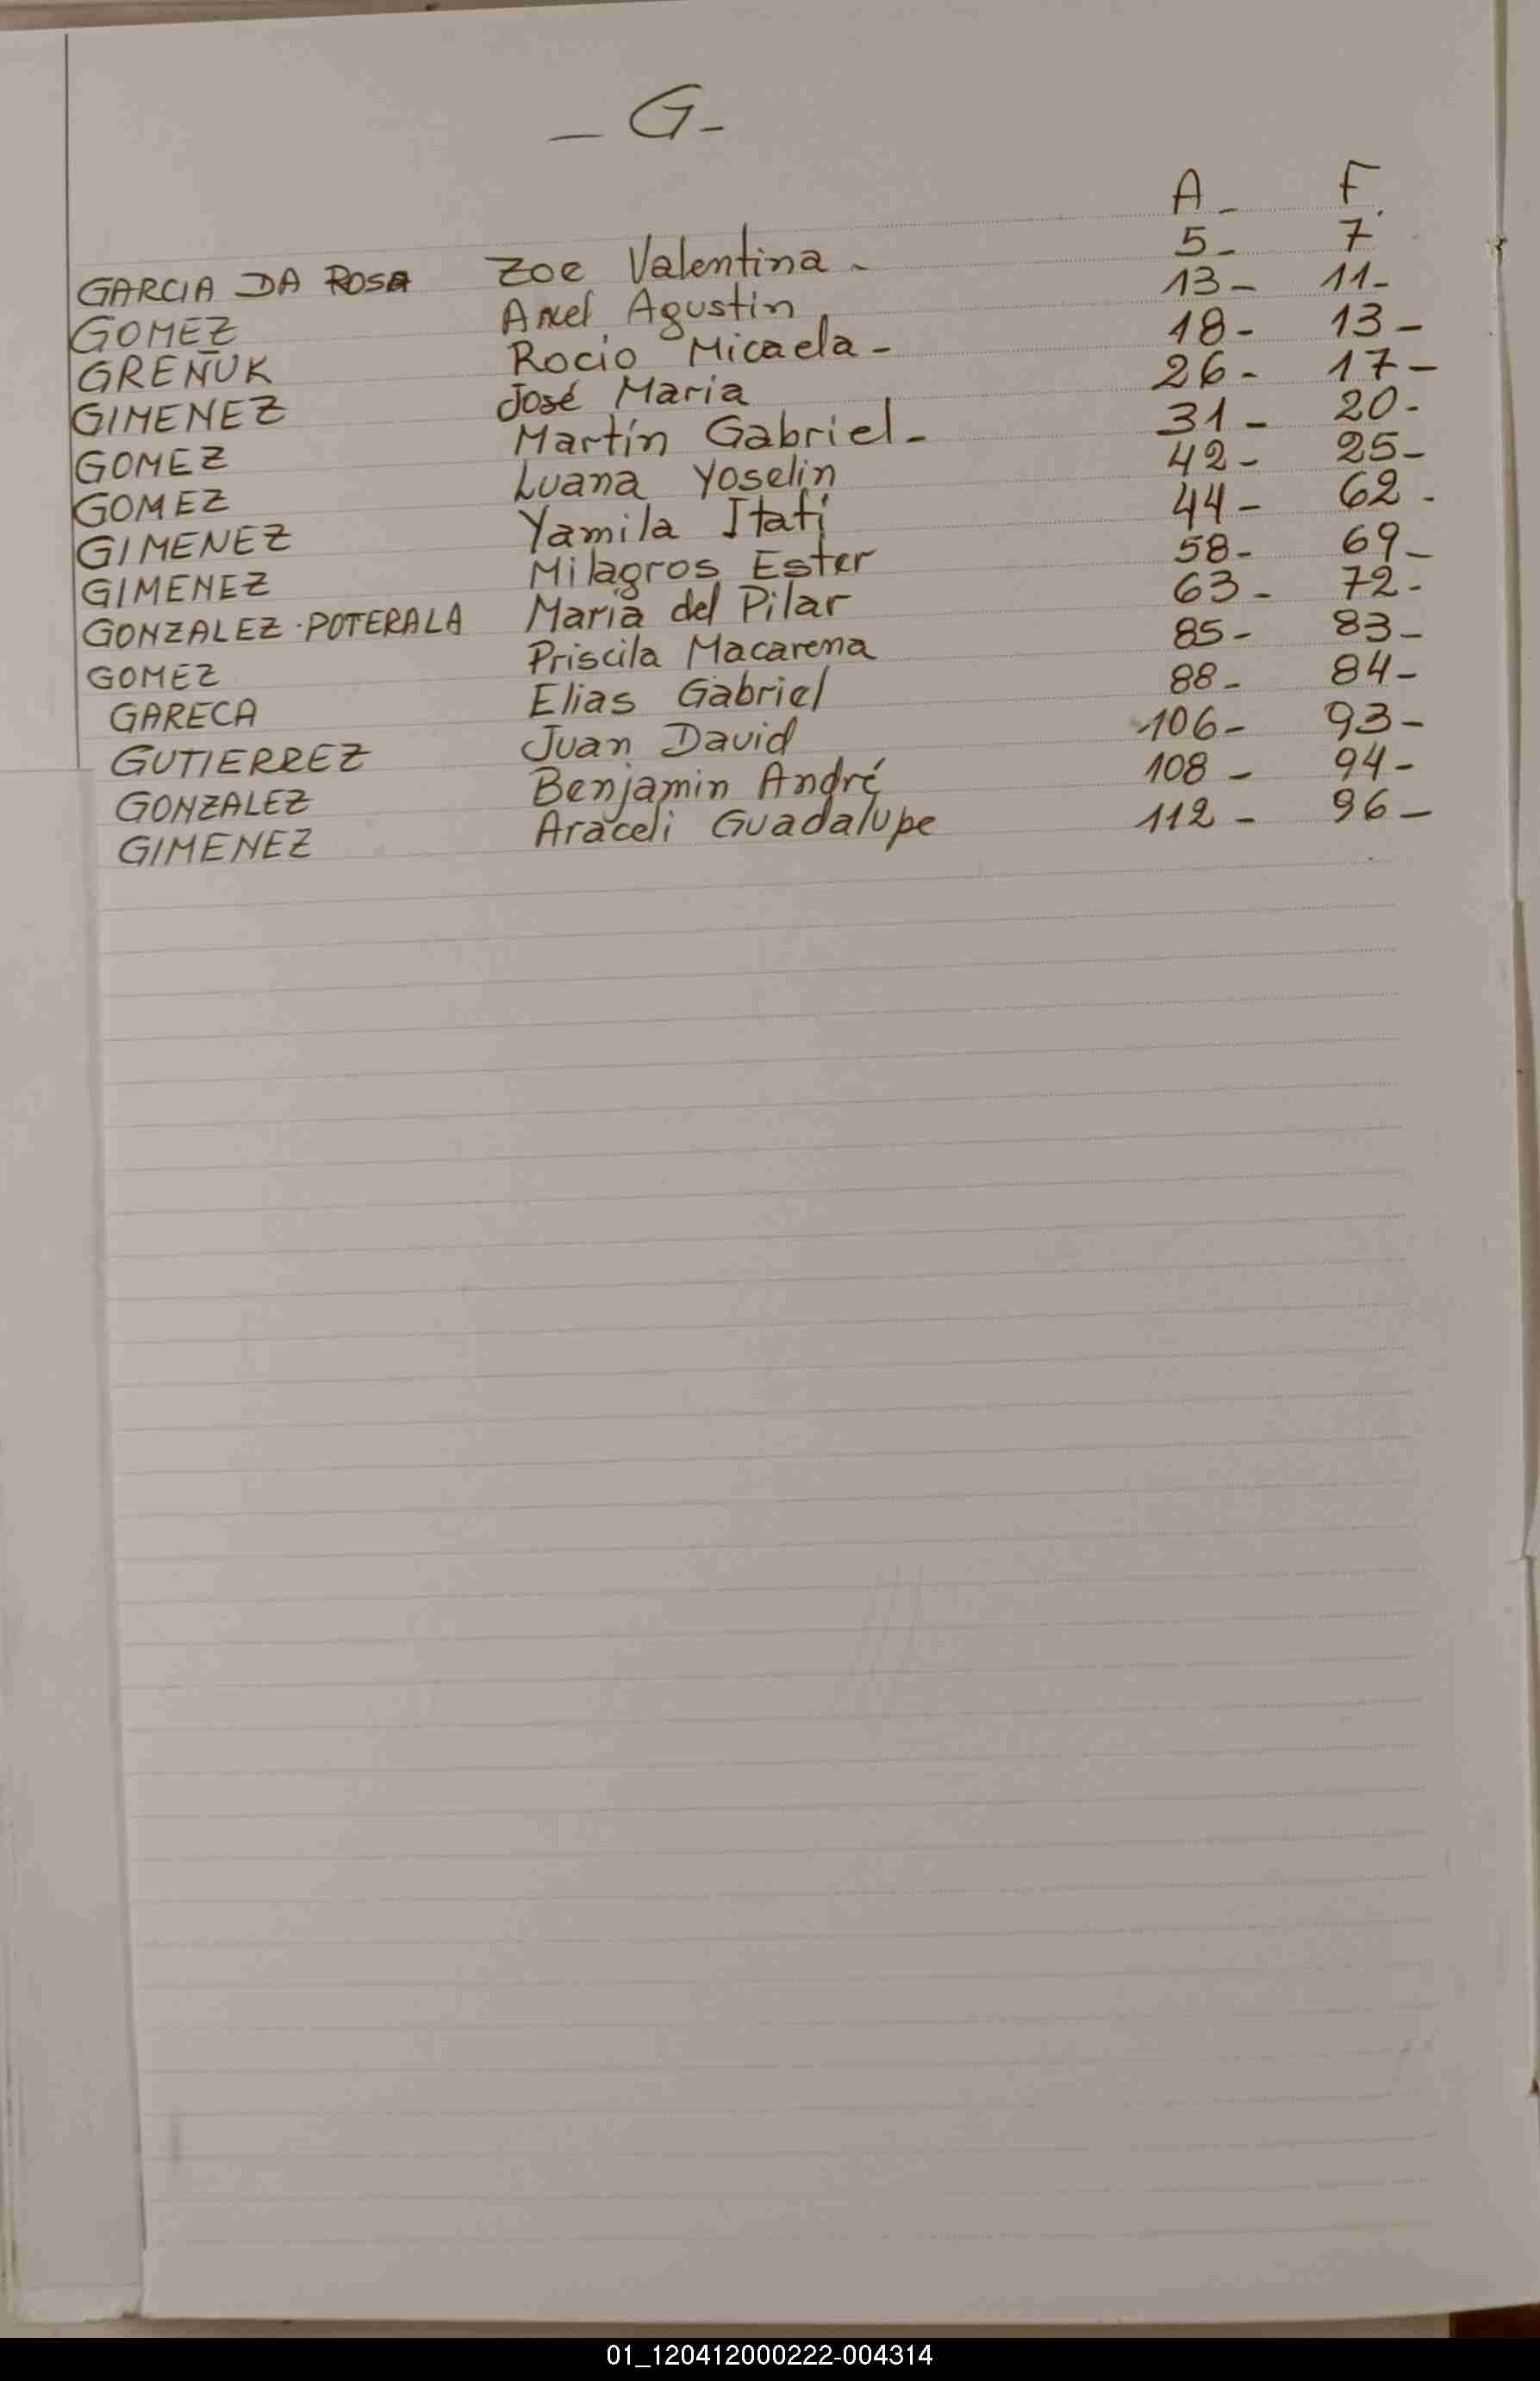 _ G_
A_ F.
GARCIA DA ROSA Zoe Valentina - 5- 7
GOMEZ Axel Agustin 13- 11-
GREÑUK Rocio Micaela - 18- 13-
GIMENEZ José Maria 26- 17-
GOMEZ Martín Gabriel - 31- 20-
GOMEZ Luana Yoselin 42- 25-
GIMENEZ Yamila Itatí 44- 62-
GIMENEZ Milagros Ester 58- 69-
GONZALEZ-POTERALA Maria del Pilar 63- 72-
GOMEZ Priscila Macarena 85- 83-
GARECA Elias Gabriel 88- 84-
GUTIERREZ Juan David 106- 93-
GONZALEZ Benjamin André 108- 94-
GIMENEZ Araceli Guadalupe 112- 96-
01_120412000222-004314